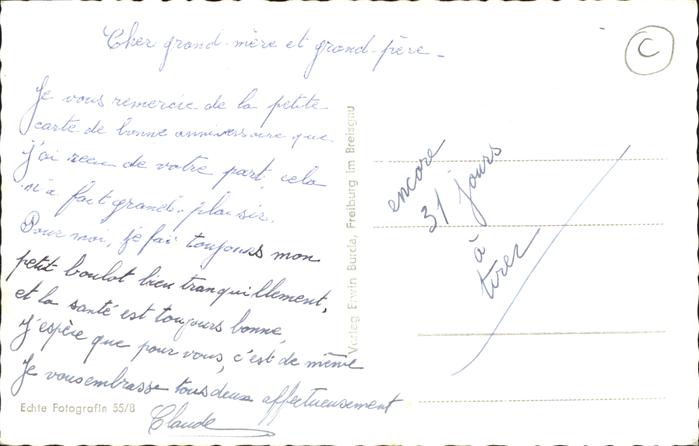 Cher grand-mère et grand-père -
Je vous remercie de la petite
carte de bonne anniversaire que
j'ai recu de votre part, cela
m'a fait grand-plaisir.
Pour moi, je fai toujours mon
petit boulot bien tranquillement,
et la santé est toujours bonne,
J'espère que pour vous, c'est de même
Je vous embrasse tous deux affectueusement
Claude
Echte Fotografin 55/8
Verlag Erwin Burda, Freiburg im Breisgau
C
encore
31 jours
à
tirer